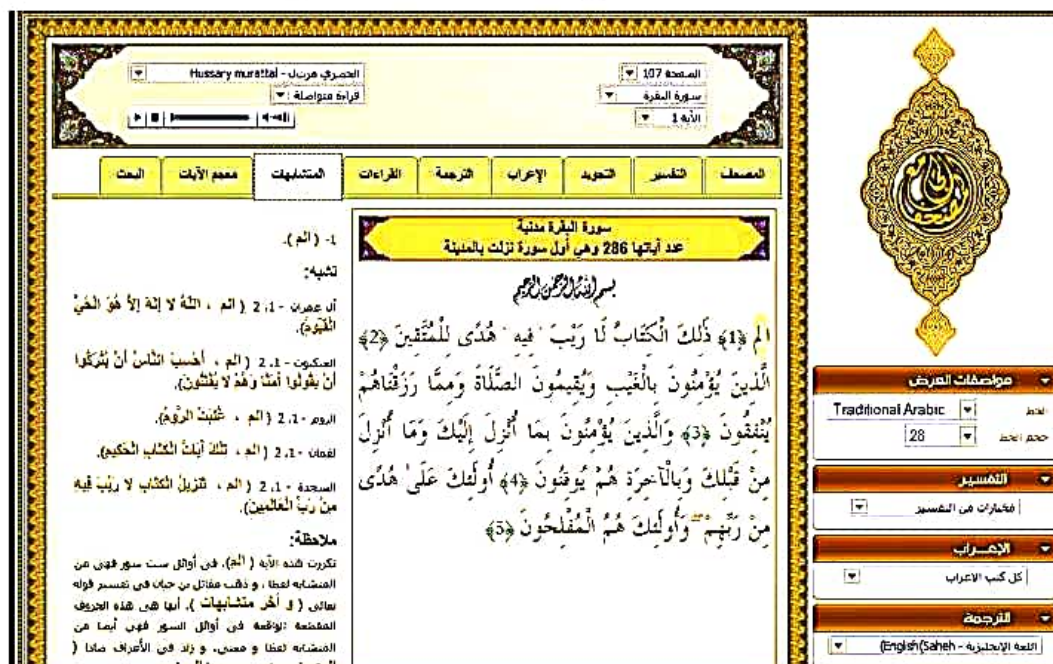 الحصري مرتل - Hussary murattal
قراءة متواصلة :
الصفحة 107
سورة البقرة
الآية 1
المصحف
التفسير
التجويد
الإعراب
الترجمة
القراءات
المتشابهات
معجم الآيات
البحث
سورة البقرة مدنية
عدد آياتها 286 وهي أول سورة نزلت بالمدينة
بسم الله الرحمن الرحيم
الم ﴿1﴾ ذَلِكَ الْكِتَابُ لَا رَيْبَ ۛ فِيهِ ۛ هُدًى لِلْمُتَّقِينَ ﴿2﴾
الَّذِينَ يُؤْمِنُونَ بِالْغَيْبِ وَيُقِيمُونَ الصَّلَاةَ وَمِمَّا رَزَقْنَاهُمْ
يُنْفِقُونَ ﴿3﴾ وَالَّذِينَ يُؤْمِنُونَ بِمَا أُنْزِلَ إِلَيْكَ وَمَا أُنْزِلَ
مِنْ قَبْلِكَ وَبِالْآخِرَةِ هُمْ يُوقِنُونَ ﴿4﴾ أُولَئِكَ عَلَىٰ هُدًى
مِنْ رَبِّهِمْ ۖ وَأُولَئِكَ هُمُ الْمُفْلِحُونَ ﴿5﴾
1- ( الم ).
تشبه:
آل عمران - 1، 2 ( الم ، اللَّهُ لا إِلَهَ إِلاَّ هُوَ الْحَيُّ
الْقَيُّومُ).
العنكبوت - 1، 2 ( الم ، أَحَسِبَ النَّاسُ أَنْ يُتْرَكُوا
أَنْ يَقُولُوا آمَنَّا وَهُمْ لا يُفْتَنُونَ).
الروم - 1، 2 ( الم ، غُلِبَتِ الرُّومُ).
لقمان - 1، 2 ( الم ، تِلْكَ آيَاتُ الْكِتَابِ الْحَكِيمِ).
السجدة - 1، 2 ( الم ، تَنْزِيلُ الْكِتَابِ لا رَيْبَ فِيهِ
مِنْ رَبِّ الْعَالَمِينَ).
ملاحظة:
تكررت هذه الآية ( الم)، في أوائل ست سور فهي من
المتشابه لفظا ، و ذهب مقاتل بن حيان في تفسير قوله
تعالى ( و أخر متشابهات )، أنها هي هذه الحروف
المقطعة الواقعة في أوائل السور فهي أيضا من
المتشابه لفظا و معنى، و زاد في الأعراف صادا (
مواصفات العرض
الخط Traditional Arabic
حجم الخط 28
التفسير
مختارات من التفسير
الإعـــراب
كل كتب الاعراب
الترجمة
اللغة الإنجليزية - English(Saheh)